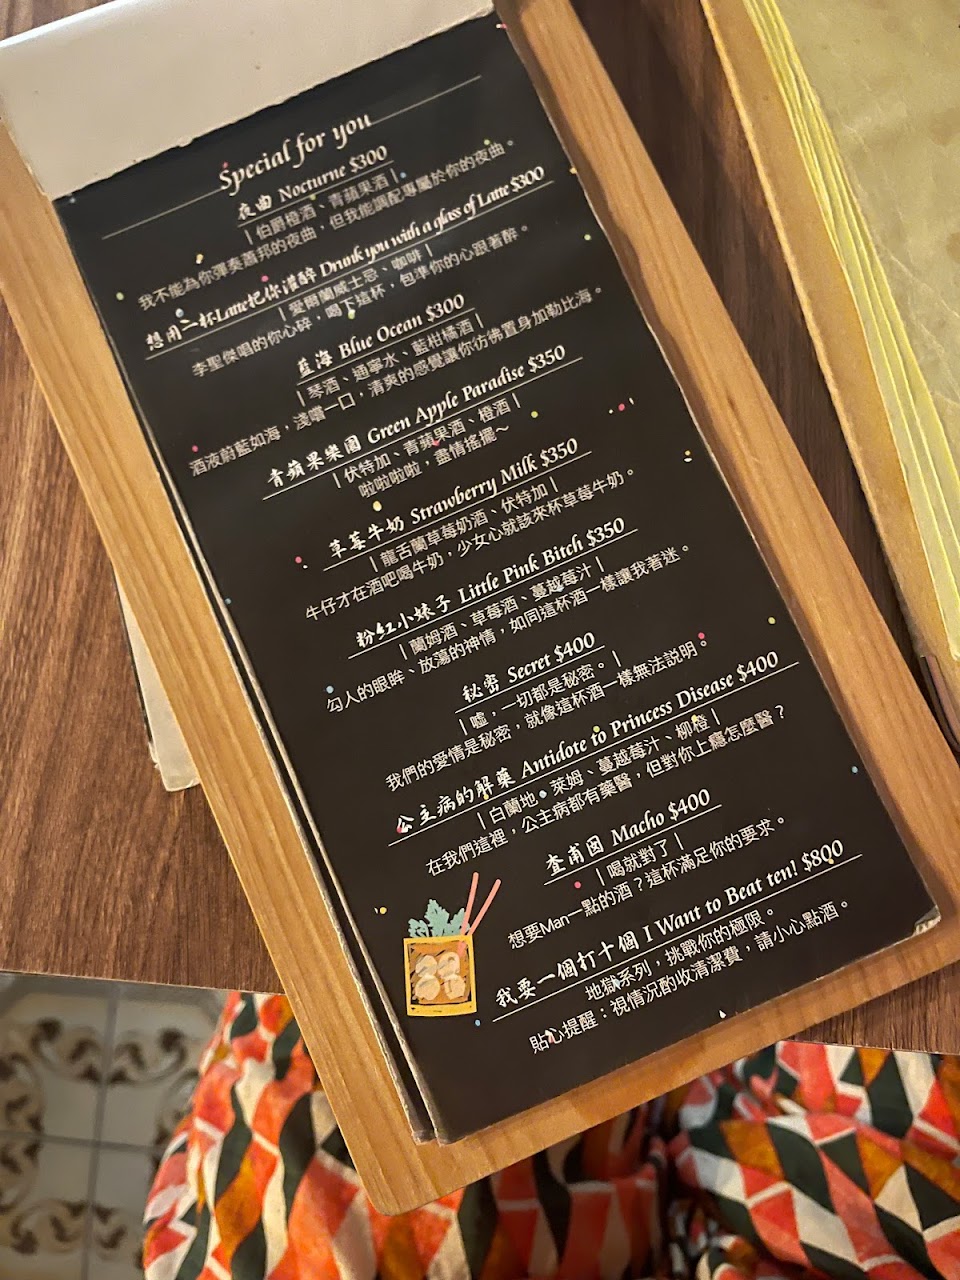 Special for you
夜曲 Nocturne $300
| 伯爵橙酒、青蘋果酒 |
我不能為你彈奏蕭邦的夜曲，但我能調配專屬於你的夜曲。
想用一杯Latte把你灌醉 Drunk you with a glass of Latte $300
| 愛爾蘭威士忌、咖啡 |
李聖傑唱的你心碎，喝下這杯，包準你的心跟著醉。
藍海 Blue Ocean $300
| 琴酒、通寧水、藍柑橘酒 |
酒液蔚藍如海，淺嚐一口，清爽的感覺讓你彷彿置身加勒比海。
青蘋果樂園 Green Apple Paradise $350
| 伏特加、青蘋果酒、橙酒 |
啦啦啦啦，盡情搖擺～
草莓牛奶 Strawberry Milk $350
| 龍舌蘭草莓奶酒、伏特加 |
牛仔才在酒吧喝牛奶，少女心就該來杯草莓牛奶。
粉紅小婊子 Little Pink Bitch $350
| 蘭姆酒、草莓酒、蔓越莓汁 |
勾人的眼眸、放蕩的神情，如同這杯酒一樣讓我著迷。
秘密 Secret $400
| 噓，一切都是秘密。 |
我們的愛情是秘密，就像這杯酒一樣無法說明。
公主病的解藥 Antidote to Princess Disease $400
| 白蘭地、萊姆、蔓越莓汁、柳橙 |
在我們這裡，公主病都有藥醫，但對你上癮怎麼醫？
查甫囡 Macho $400
| 喝就對了 |
想要Man一點的酒？這杯滿足你的要求。
我要一個打十個 I Want to Beat ten! $800
地獄系列，挑戰你的極限。
貼心提醒：視情況酌收清潔費，請小心點酒。